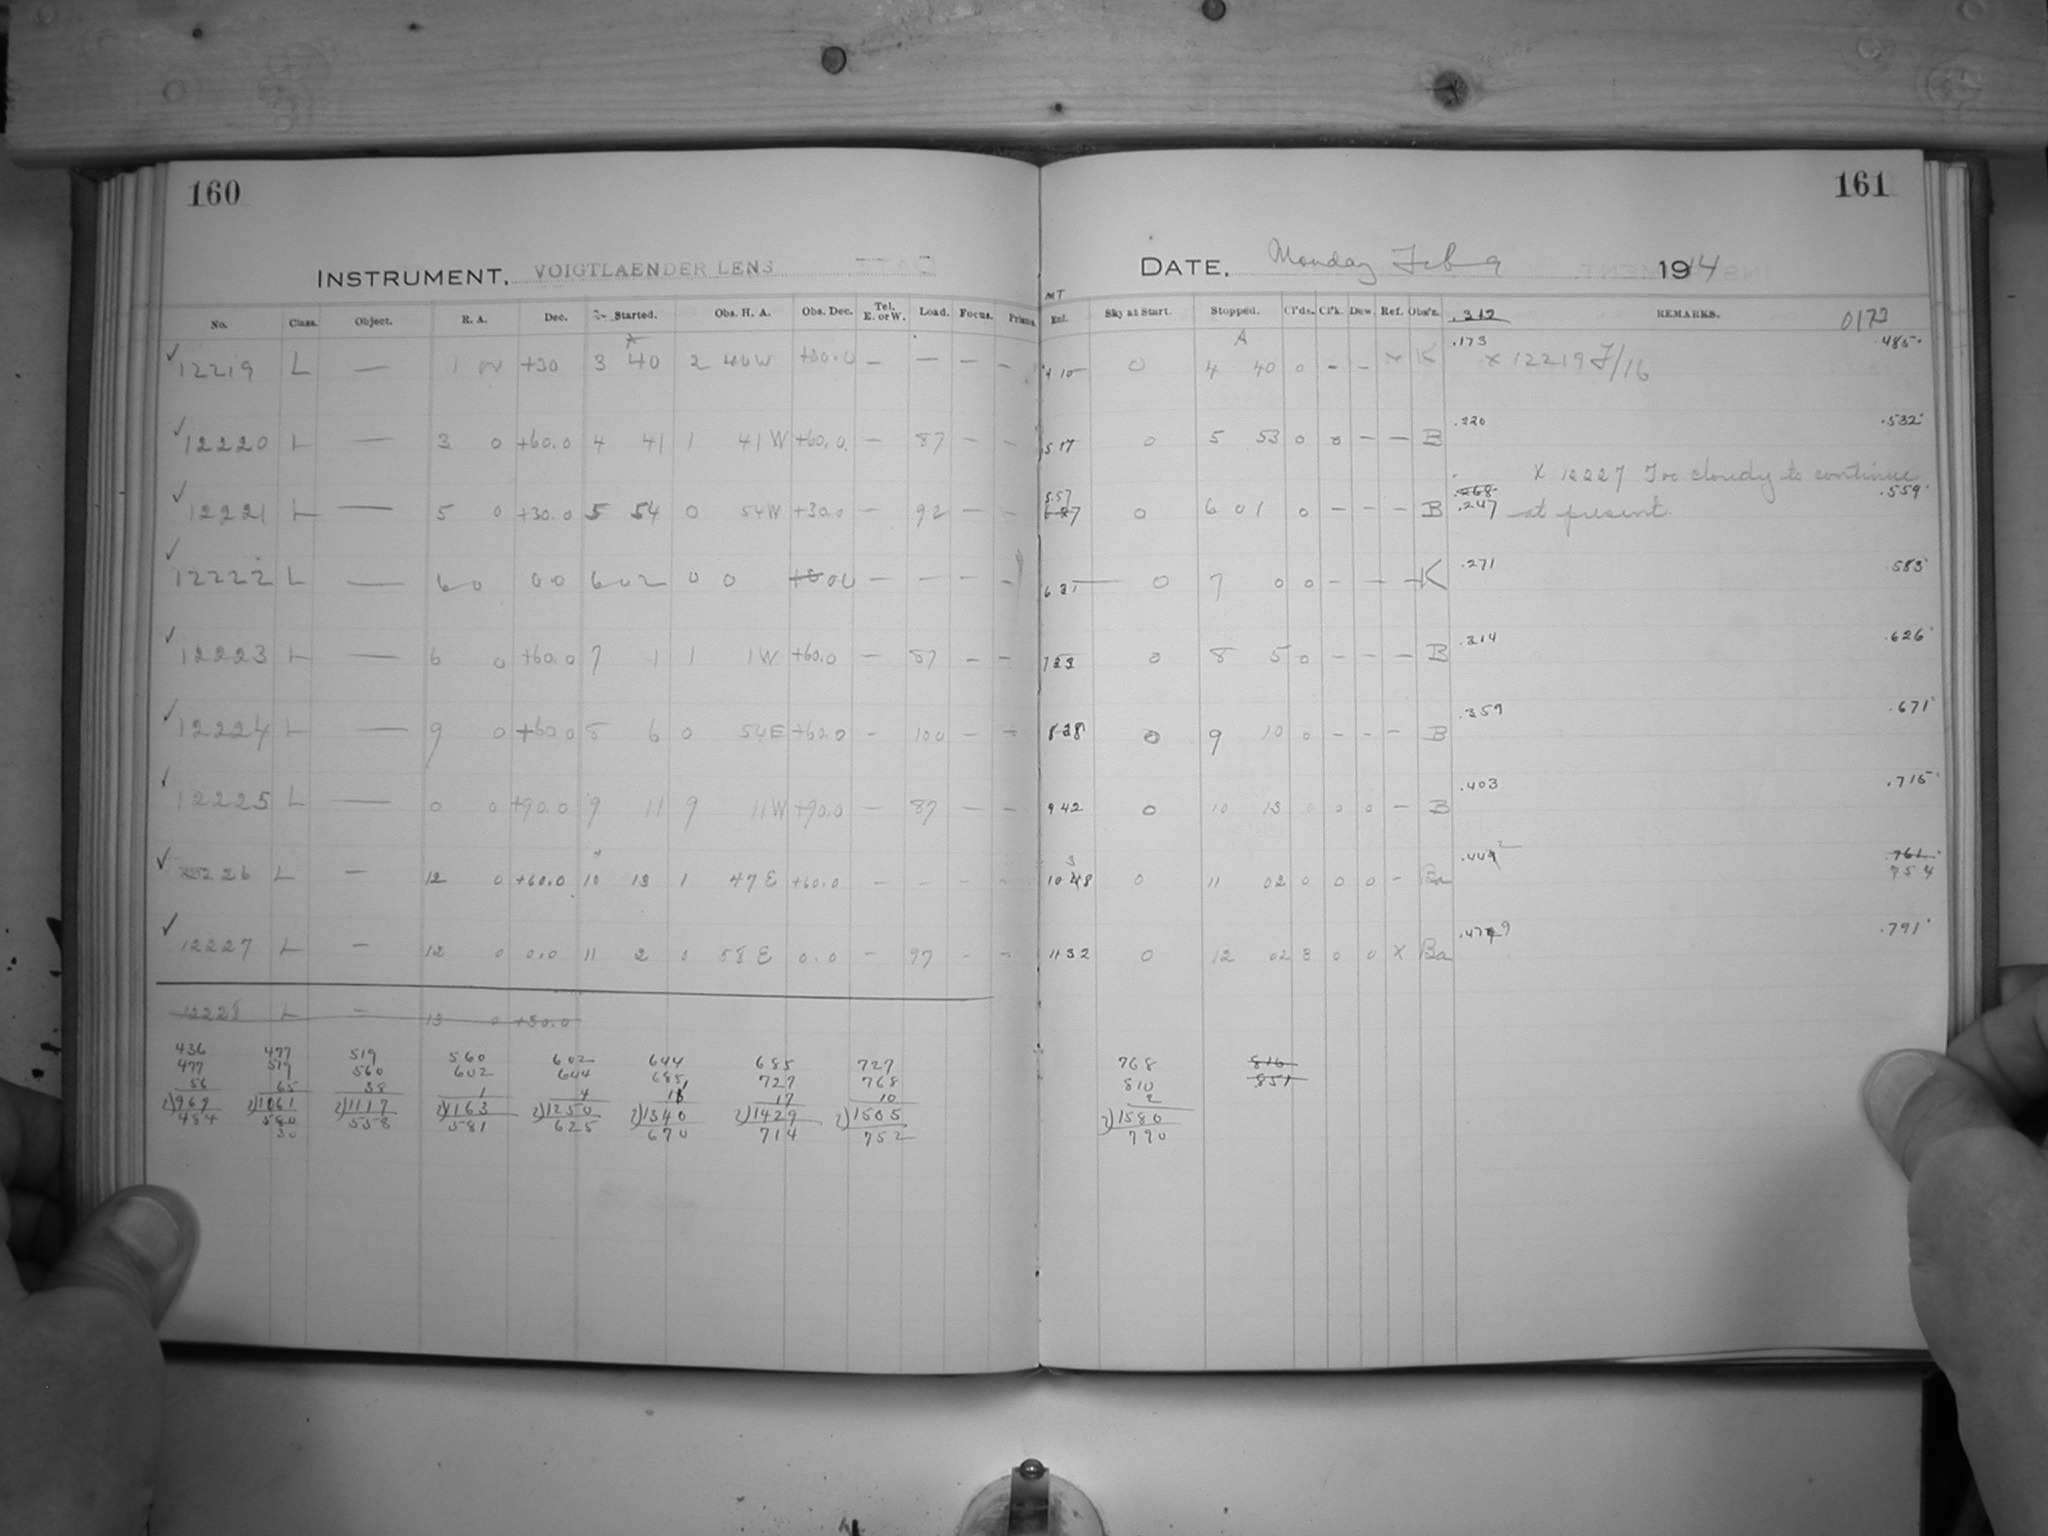 160
161
INSTRUMENT, VOIGTLAENDER LENS
DATE, Monday Feb 9 1914
No. Class. Object. R. A. Dec. Started. Obs. H. A. Obs. Dec. Tel. E. or W. Load. Focus. Prisms.
MT Exf. Sky at Start. Stopped. Cl'ds. Cl'k. Dew. Ref. Obs'r. .312 REMARKS. 0173
✓ 12219 L — 1 W +30 3 40 2 40W +30.0 — — — —
4 10 0 4 40 0 - - x K .173 x 12219 F/16 .485
✓ 12220 L — 3 0 +60.0 4 41 1 41W +60.0 — 87 — —
5 17 0 5 53 0 0 — — B .220 .532
X 12227 Too cloudy to continue
✓ 12221 L — 5 0 +30.0 5 54 0 54W +30.0 — 92 — —
5.57 0 6 01 0 - - - B .268 .247 at present. .559
✓ 12222 L — 6 0 0 0 6 02 0 0 00 — — — —
6 31 0 7 0 0 - — — K .271 .583
✓ 12223 L — 6 0 +60.0 7 1 1 1W +60.0 — 87 — —
7 33 0 8 5 0 - - — B .314 .626
✓ 12224 L — 9 0 +60.0 8 6 0 54E +60.0 - 100 — —
8 38 0 9 10 0 - - - B .359 .671
✓ 12225 L — 0 0 +90.0 9 11 9 11W +90.0 — 87 — —
9 42 0 10 13 0 0 0 — B .403 .715
✓ 12226 L — 12 0 +60.0 10 13 1 47E +60.0 - - - -
10 38 0 11 02 0 0 0 - Ba .442 .761 754
✓ 12227 L — 12 0 0.0 11 2 0 58E 0.0 — 97 - -
11 32 0 12 02 8 0 0 X Ba .479 .791
12228 L — 13 0 +30.0
436 477 519 560 602 644 685 727 768 816
477 519 560 602 644 685 727 768 810 851
56 65 38 1 4 11 17 10 2
2)969 2)1061 2)1117 2)1163 2)1250 2)1340 2)1429 2)1505 2)1580
484 530 558 581 625 670 714 752 790
30